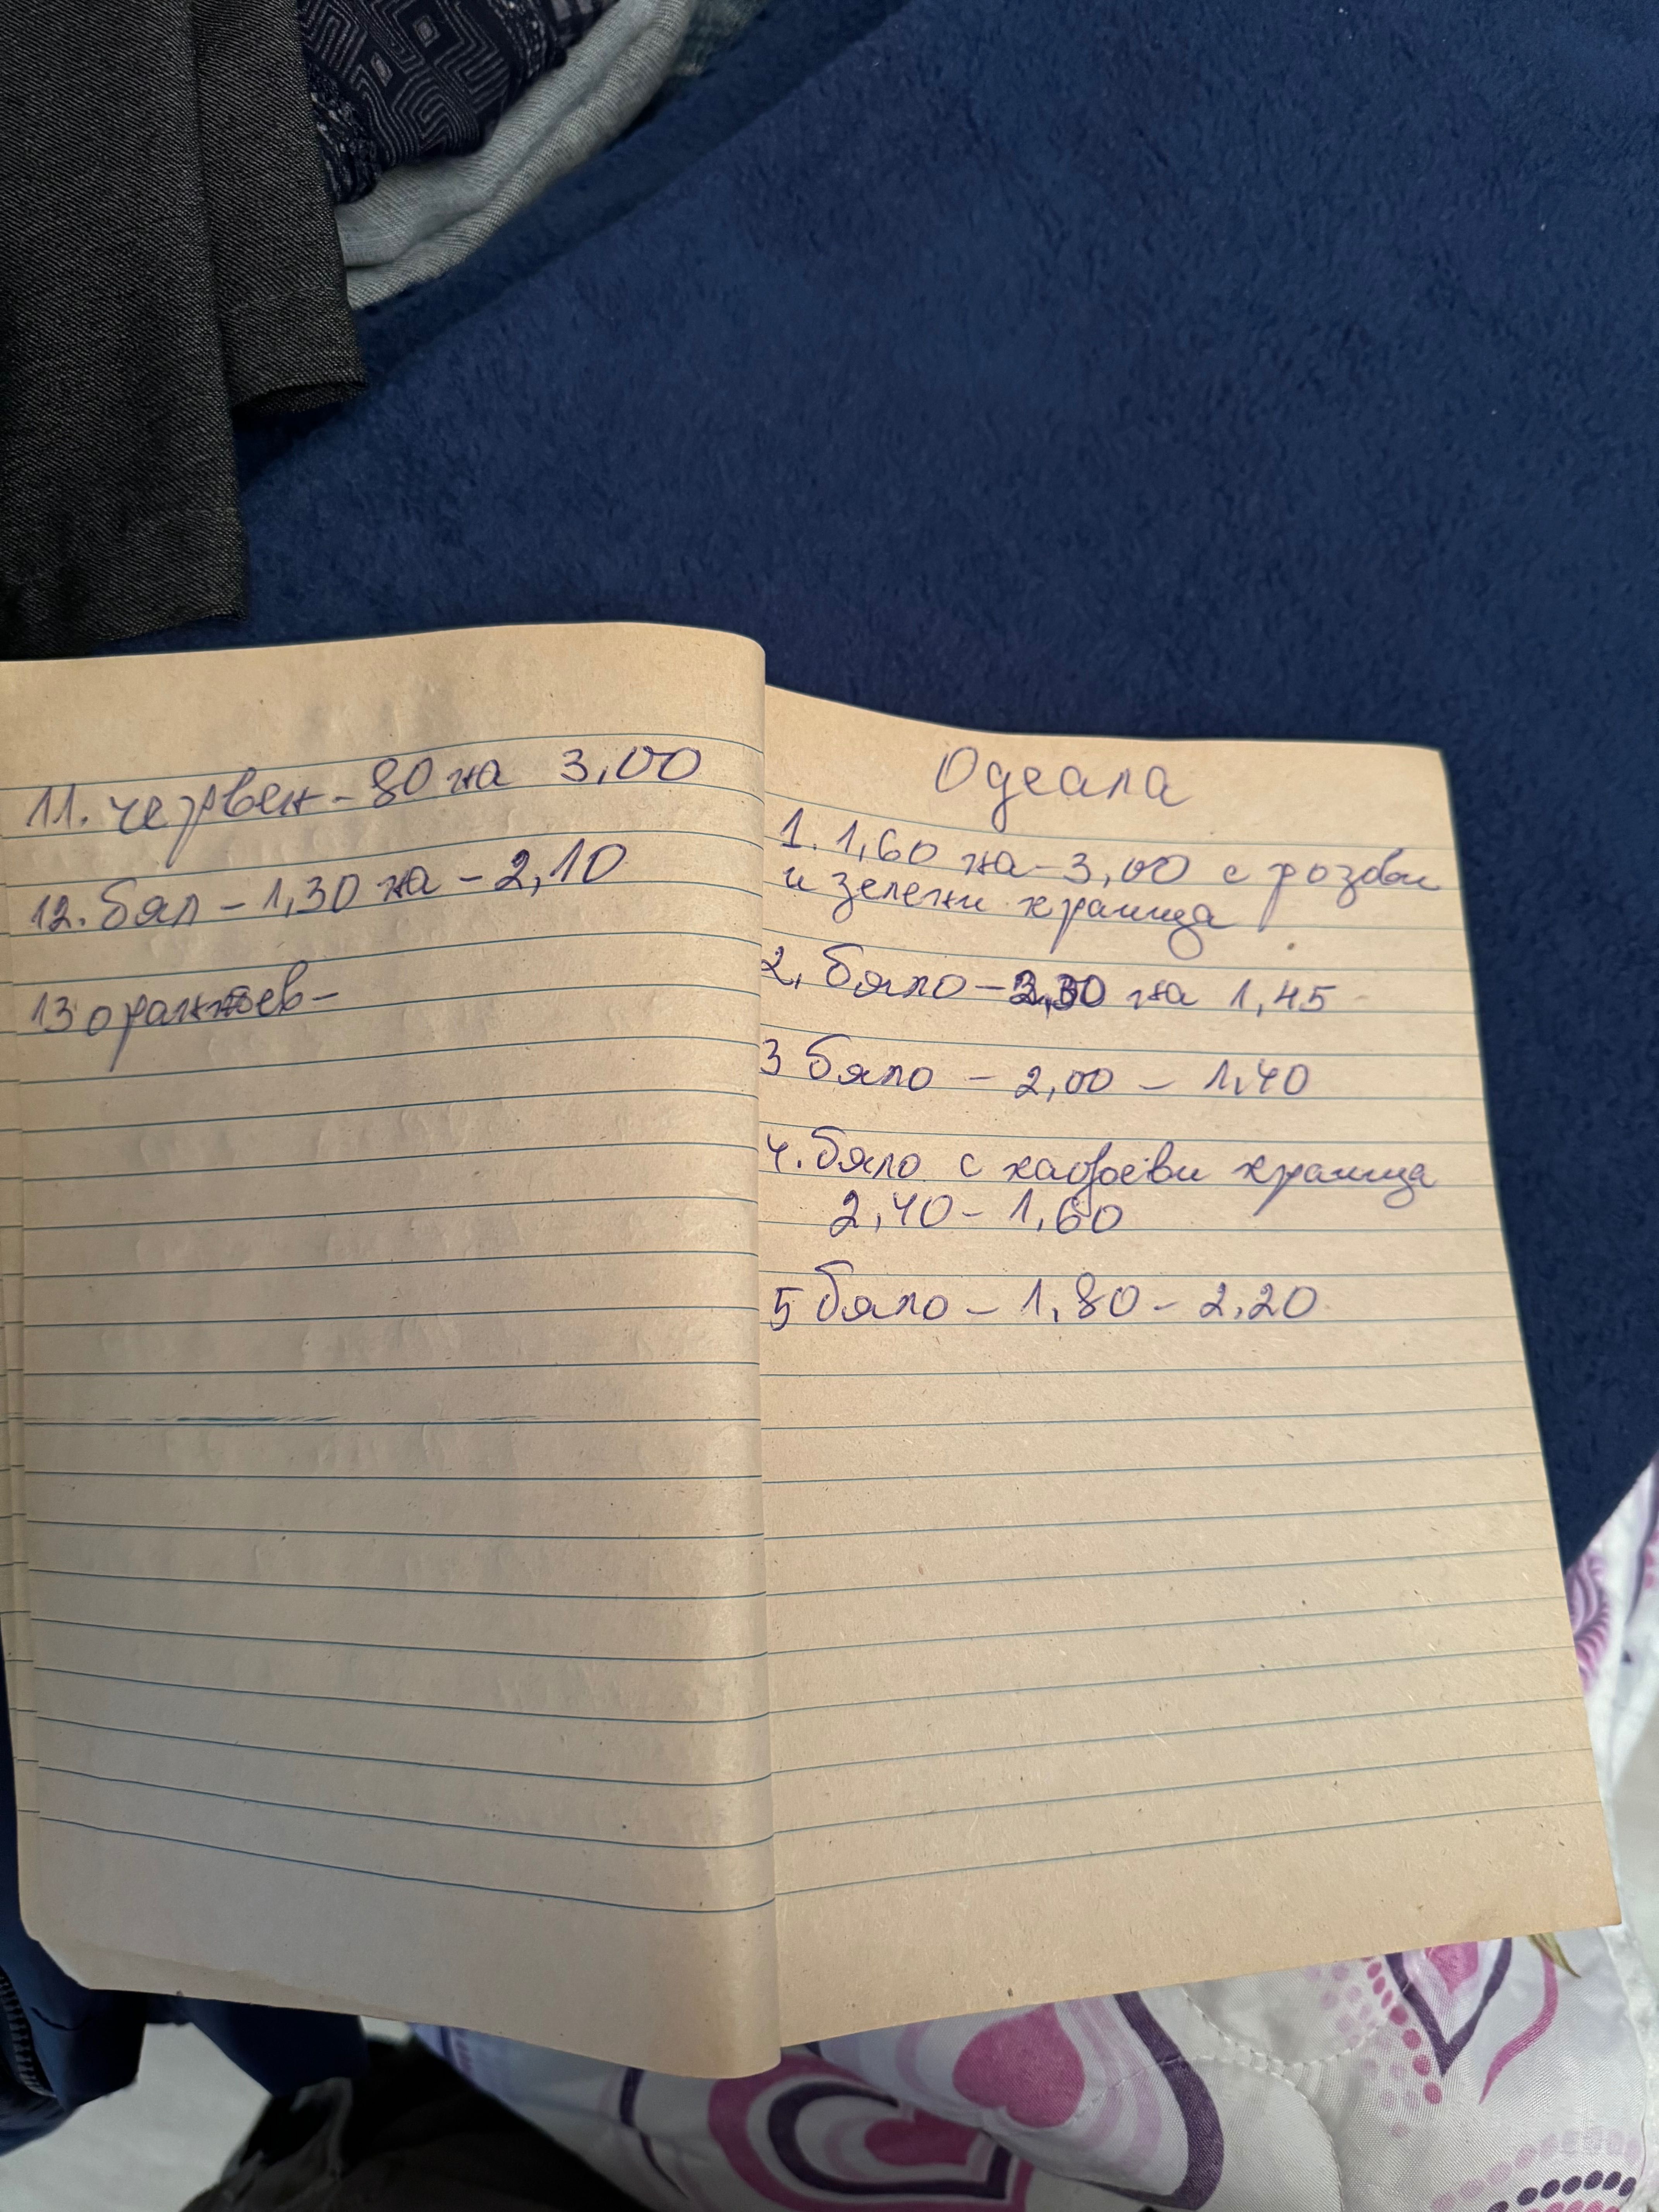 11. червен - 80 на 3,00
12. бял - 1,30 на - 2,10
13 оранжев -
Одеала
1. 1,60 на - 3,00 с розови
и зелени краища
2, бяло - на 1,45
3 бяло - 2,00 - 1,40
4. бяло с кафеви краища
2,40 - 1,60
5 бяло - 1,80 - 2,20